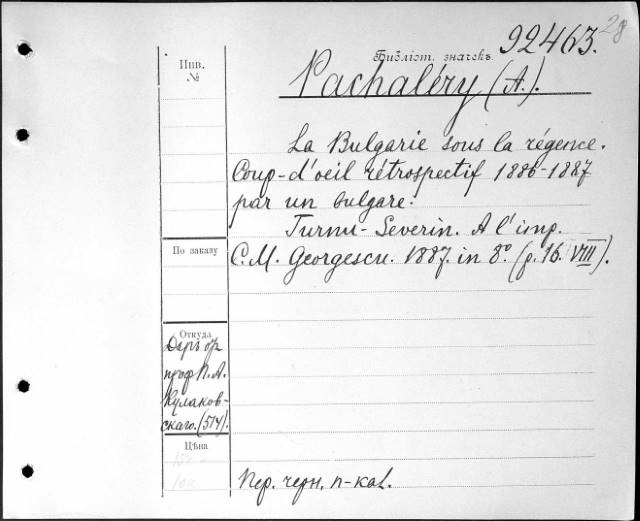 92463.
28
Библіот. значекъ
Инв.
№
Pachaléry (A.).
La Bulgarie sous la régence.
Coup-d'oeil rétrospectif 1886-1887
par un bulgare.
Turnu-Severin. A l'imp.
C.M. Georgescu. 1887. in 8º. (p. 16. VIII).
По заказу
Откуда
Даръ отъ
проф П.А.
Кулаков-
скаго. (514).
Цѣна
Пер. черн. п-кал.